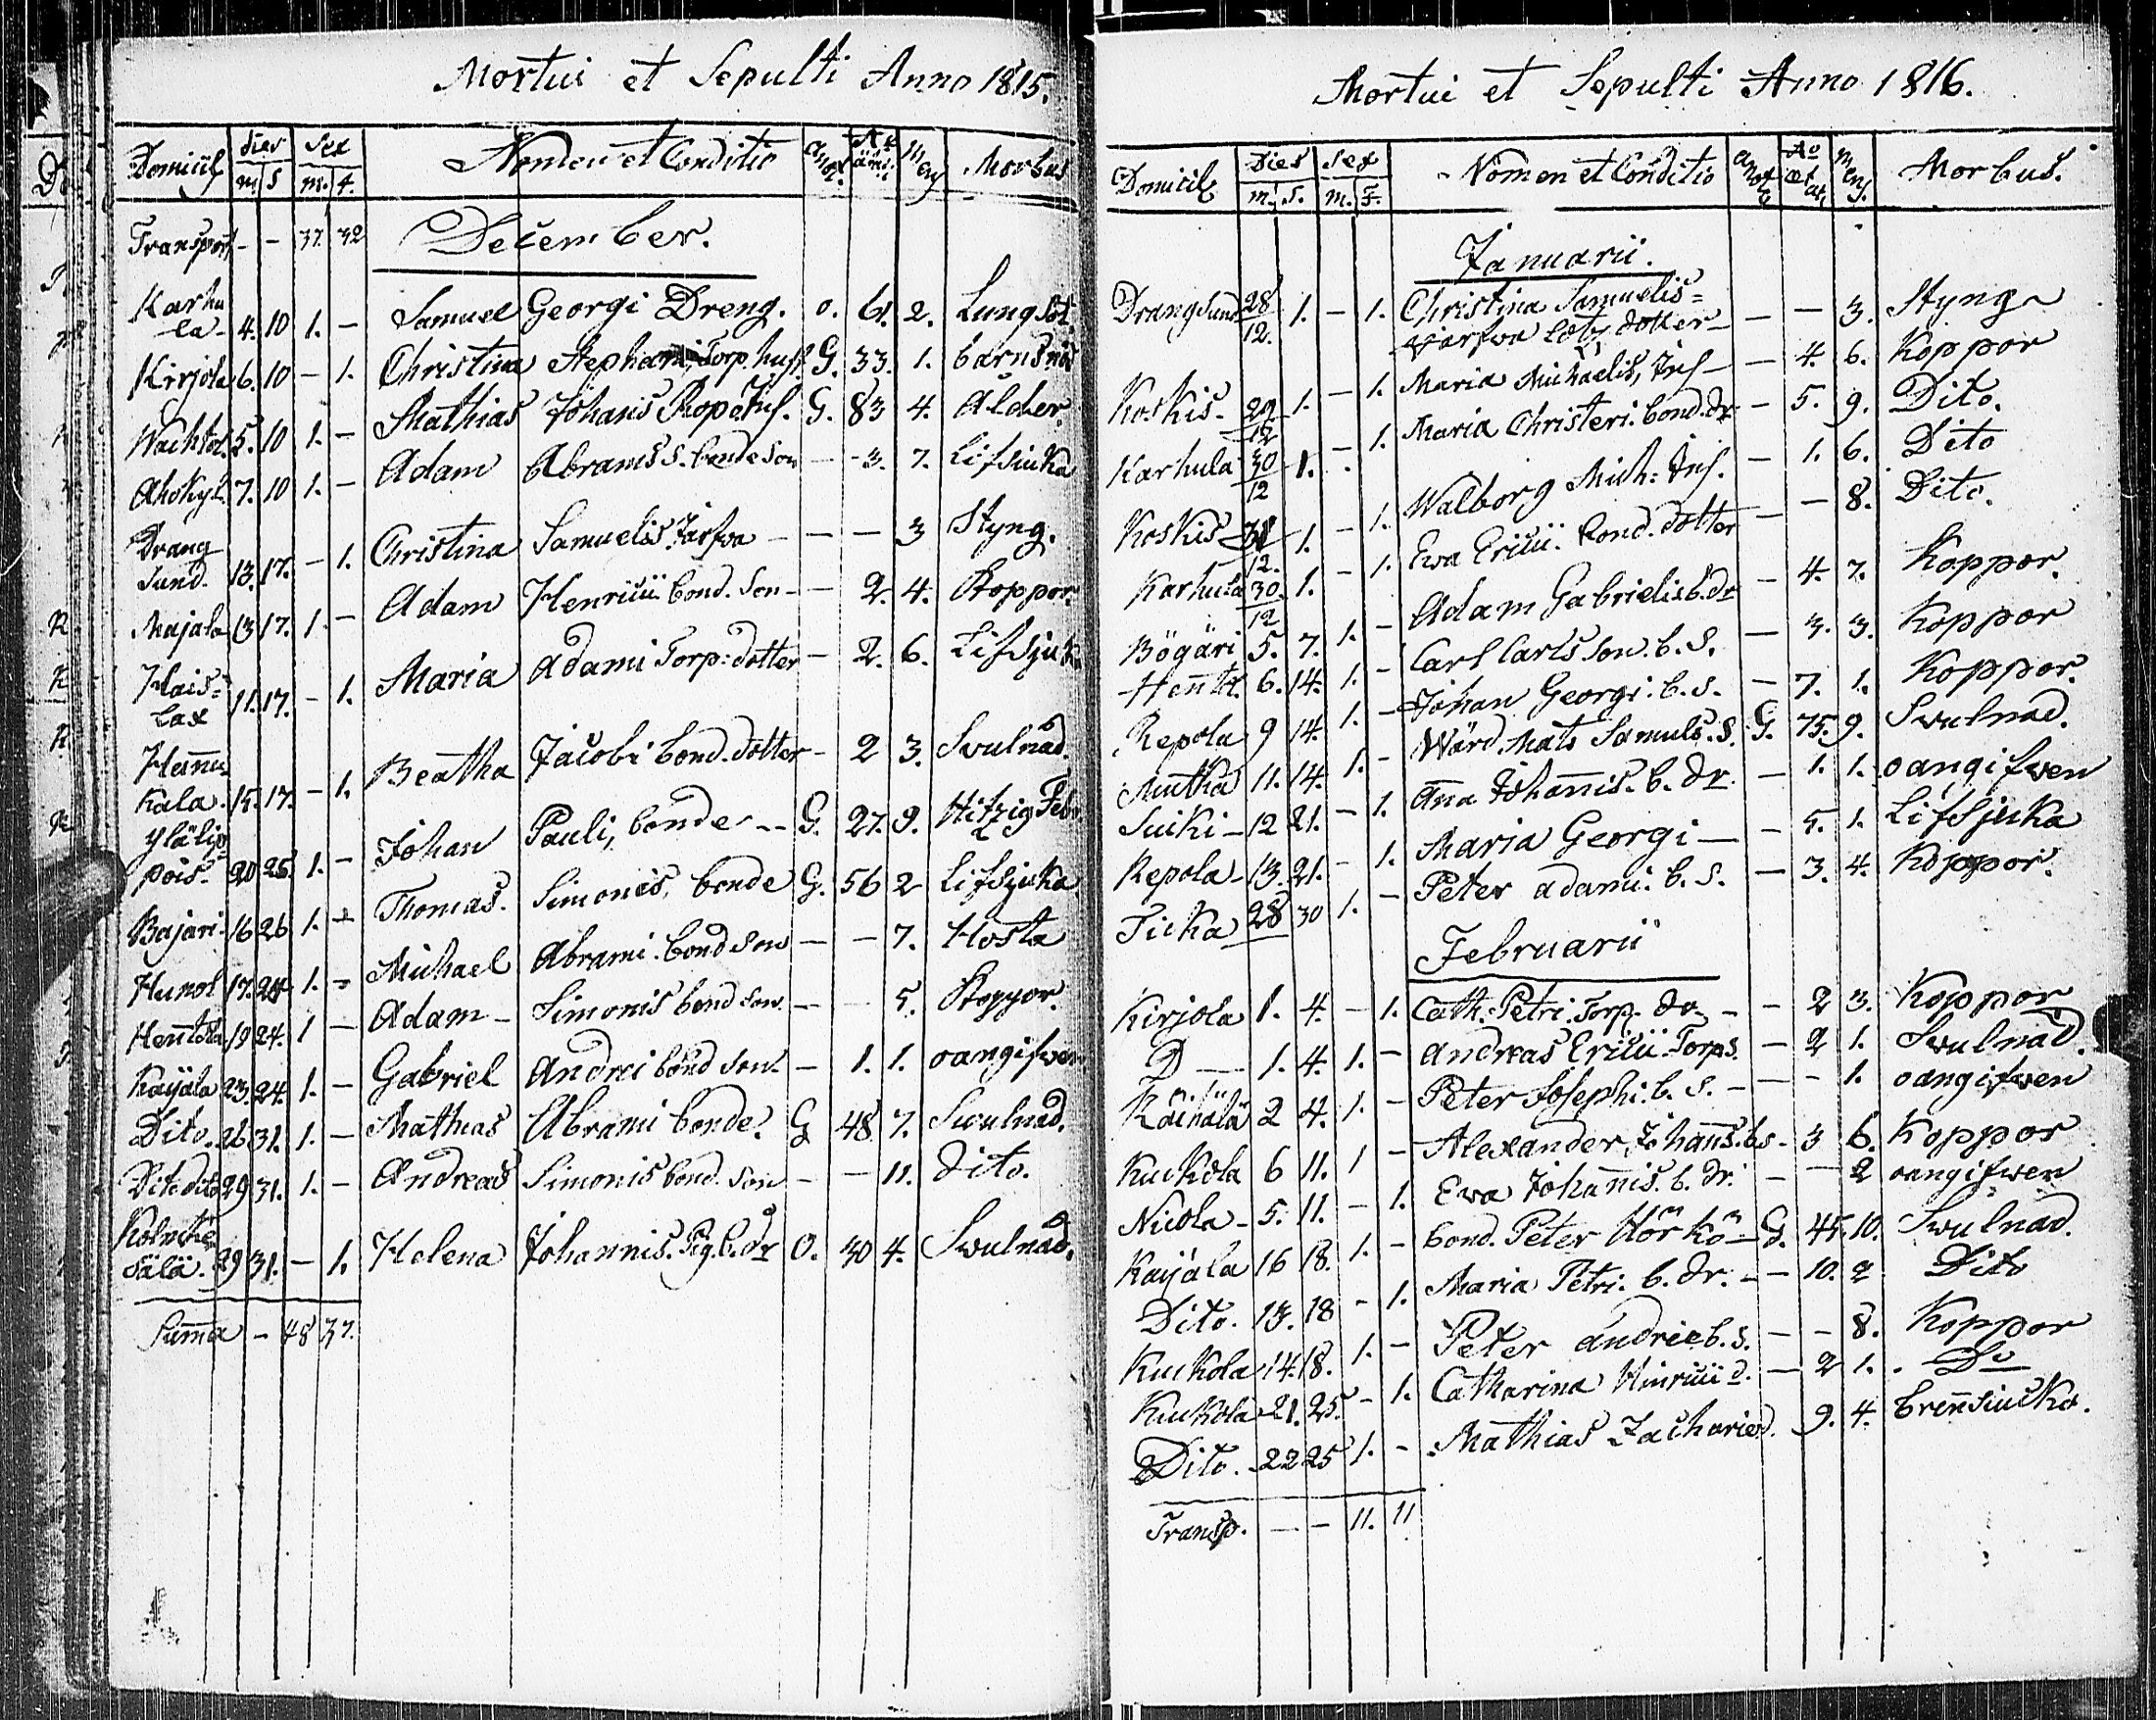 Mortui et Sepulti Anno 1815.
Domicil dies m s Sex m. f. Nomen et Conditio Mens Morbus
Transport - - 37. 32 December.
Karhu
la - 4. 10 1. - Samuel Georgi Dreng. o. 61. 2. Lungsot
Kirjola 6. 10 - 1. Christina Stephani Torp. hust G. 33. 1. barnsnöd
Wachtol. 5. 10 1. - Mathias Johanis Inh. G. 83 4. Ålder
Ahokyl. 7. 10 1. - Adam Abrams S. bonde Son - 3. 7. Lifsiuka
Drang
sund. 13. 17. - 1. Christina Samuelis Järfwa - - - 3 Styng.
Majala 13 17. 1. - Adam Henricii bond. Son - - 2. 4. Koppor.
Hais=
lax 11. 17. - 1. Maria Adami Torp: dotter - 2. 6. Lifsjuk
Hannu
kala. 15. 17. - 1. Beatha Jacobi bond. dotter - 2 3. Swulnad.
Ylälip=
pois. 20 25. 1. - Johan Pauli, bonde - - G. 27. 9. Hitzig Feb
Bajari - 16 26 1. - Thomas. Simonis, bonde G. 56 2 Lifsjuka
Hunol 17. 24 1. - Michael Abrami. bond son - - 7. Hosta
Hentola 19 24. 1 - Adam - Simonis bond son. - - 5. Koppor.
Kaÿala 23. 24. 1. - Gabriel Andrei bond son. - 1. 1. oangifwen
Dito. 26 31. 1. - Mathias Abrami bonde. G 48 7. Swulnad.
Dito dito 29 31. 1. - Andreas Simonis bond. son - - 11. Dito.
Kolmike
sälä. 29 31. - 1. Helena Johannis. Pig. b. dr O. 30 4. Swulnad.
Summa - 48 37.
Mortui et Sepulti Anno 1816.
Domicil Dies m. S. Sex m. F. Nomen et Conditio Ao ætat. mens. Morbus.
Januarii.
Drangsund 28/12. 1. - 1. Christina Samuelis=
Järfwa dotter - - - 3. Styng
Koskis - 29/12 1. - 1. Maria Michaelis, Inh - - 4. 6. Koppor
Karhula 30/12 1. - 1. Maria Christeri. bond. dr - 5. 9. Dito.
Koskis 31/12. 1. - 1. Walborg Mich: Inh. - 1. 6. Dito
Karhula 30./12 1. - 1. Ewa Ericii. bond. dotter - - 8. Dito.
Bögäri 5. 7. 1. - Adam Gabrielis b. dr - 4. 7. Koppor.
Hentol. 6. 14. 1. - Carl Carls Son. b. S. - 3. 3. Koppor
Repola 9 14. 1. - Johan Georgi. b. s. - 7. 1. Koppor.
Mutka 11. 14. 1. - Wärd. Mats Samuls. S. G. 75. 9. Swulnad.
Suiki - 12 21. - 1. Anna Johannis. b. dr. - 1. 1. oangifwen
Repola - 13. 21. - 1. Maria Georgi - - 5. 1. Lifsjuka
Ticka 28 30 1. - Peter Adami. b. s. - 3. 4. Koppor.
Februarii
Kirjola 1. 4. - 1. Cath. Petri. Torp. do - - 2 3. Koppor
D - 1. 4. 1. - Andreas Ericii. Torps. - 2 1. Swulnad.
Käinälä 2 4. 1. - Peter Josephi. b. s. - - - 1. oangifwen
Kuckola 6 11. 1 - Alexander Johans. bs - 3 6. Koppor
Nicola - 5. 11. - 1. Ewa Johannis. b. dr. - - 2 oangifwen
Kaÿala 16 18. 1. - bond. Peter Hörkö - G. 45. 10. Swulnad.
Dito. 13. 18 - 1. Maria Petri. b. dr. - - 10. 2 Dito
Kuckola 14. 18. 1. - Peter Andrie b. s. - - 8. Koppor
Kuckola 21. 25. - 1. Catharina Hinricii d. - 2 1. Do
Dito. 22 25 1. - Mathias Zacharie d. 9. 4. brensiucko.
Transp. - - 11. 11